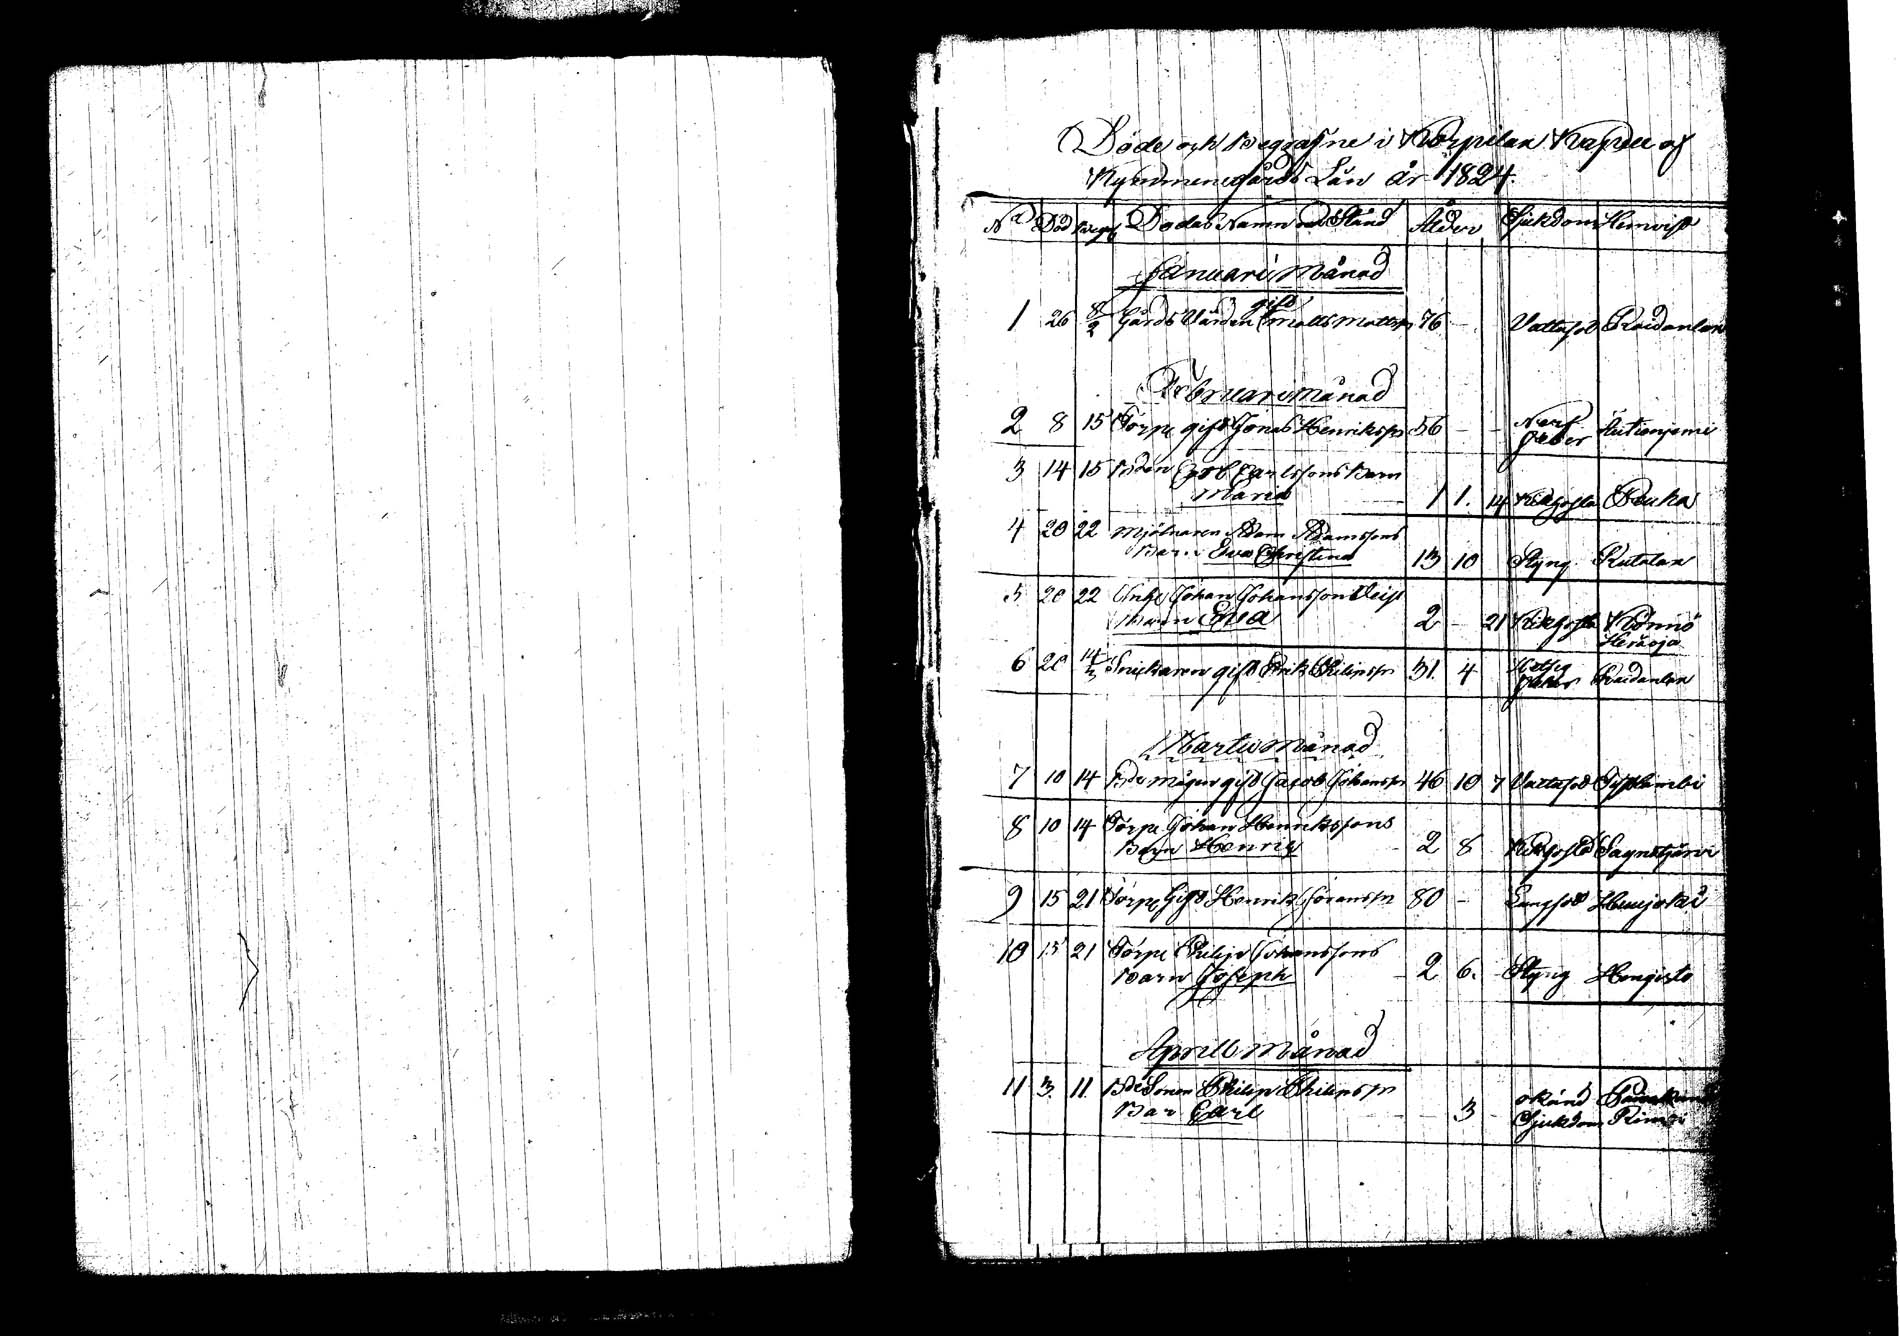 Döde och Begrafne i Korpilax Kapell af
Kymmenegårds Län år 1824.
No Död Begr Dödas Namn och Stånd Ålder Sjukdom Hemvist
Januari Månad
1 26 8/2 Gårds Värden gift Matts Mattss 76 - Vattusot Raidanlax
Februari Månad
2 8 15 Torp gift Jonas Henrikss 56 - - Nerf feber
3 14 15 Bden Carlssons Barn
Maria 1 1. 14 Kikhosta
4 20 22 Mjölnaren Adam Adamssons
Barn Eva Christina 13 10 Styng Rutalax
5 20 22 Johan Johansson
Barn Eva 2 - 21 Kikhosta
6 20 14/3 Snickaren gift Erik Philipss 31. 4 feber Raidanlax
Martii Månad
7 10 14 Bde mågen gift Jacob Johanss 46 10 7 Vattusot
8 10 14 Torp Johan Henrikssons
Barn Henric 2 8 Kikhosta
9 15 21 Torp Gift Henrik Johanss 80 - Lungsot
10 15 21 Torp Philip Johanssons
Barn Joseph - 2 6. - Styng
Aprill Månad
11 3. 11. Bde Sonen Philip Philipss
Bar Carl - - 3 - okänd
Sjukdom